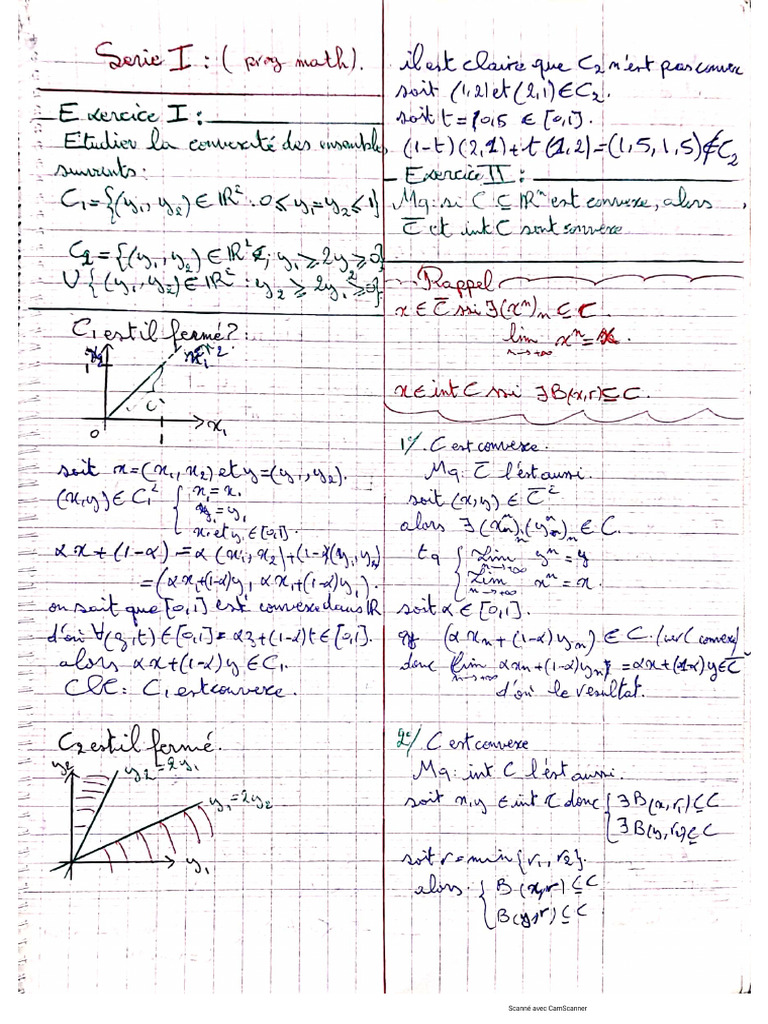 Serie I : ( prog math).
Exercice I :
Etudier la convexité des ensembles
suivants:
C₁={(y₁, y₂) ∈ IR² : 0 ≤ y₁=y₂ ≤ 1}
C₂={(y₁, y₂) ∈ IR² ; y₁ ≥ 2y₂ ≥ 0}
U {(y₁, y₂) ∈ IR² : y₂ ≥ 2y₁ ≥ 0}
C₁ est il fermé ? :
x₁
0
soit x=(x₁, x₂) et y=(y₁, y₂).
(x,y) ∈ C₁²
x₁ et y₁ ∈ [0,1].
= (αx₁+(1-α)y₁, αx₁+(1-α)y₁).
on sait que [0,1] est convexe dans IR
d'où ∀(z,t) ∈ [0,1]² αz+(1-α)t ∈ [0,1].
alors αx+(1-α)y ∈ C₁.
CLC: C₁ est convexe.
C₂ est il fermé.
y₂
y₂=2y₁
y₁=2y₂
y₁
il est claire que C₂ n'est pas convexe
soit (1,2) et (2,1) ∈ C₂.
soit t = 0,5 ∈ [0,1].
(1-t)(2,1)+t(1,2)=(1,5, 1,5) ∉ C₂
Exercice II :
Mq: si C ⊆ IRⁿ est convexe, alors
C̅ et int C sont convexe
Rappel
x ∈ C̅ ssi ∃(xⁿ)ₙ ⊆ C
lim xⁿ = x
n→+∞
x ∈ int C ssi ∃ B(x,r) ⊆ C.
1°/ C est convexe.
Mq: C̅ l'est aussi.
soit (x,y) ∈ C̅²
alors ∃ (xⁿ)ₙ (yⁿ)ₙ ∈ C.
tq { lim yⁿ = y
n→+∞
lim xⁿ = x.
n→+∞
soit α ∈ [0,1].
(αxₙ + (1-α)yₙ) ∈ C. (car C convexe)
donc lim αxₙ + (1-α)yₙ = αx+(1-α)y ∈ C̅
n→+∞
d'où le resultat.
2°/ C est convexe
Mq: int C l'est aussi.
soit x,y ∈ int C donc { ∃ B(x,r₁) ⊆ C
∃ B(y,r₂) ⊆ C
soit r = min{r₁, r₂}.
alors { B(x,r) ⊆ C
B(y,r) ⊆ C
Scanné avec CamScanner